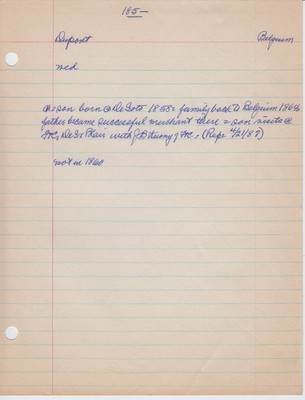 185-
Dupont Belgium
med
a = son born @ DeSoto 1858 = family back to Belgium 1868
father became successful merchant there = son visits @
FC, DeS + Blair with of FC = (Rep: 4/21/87)
not in 1860